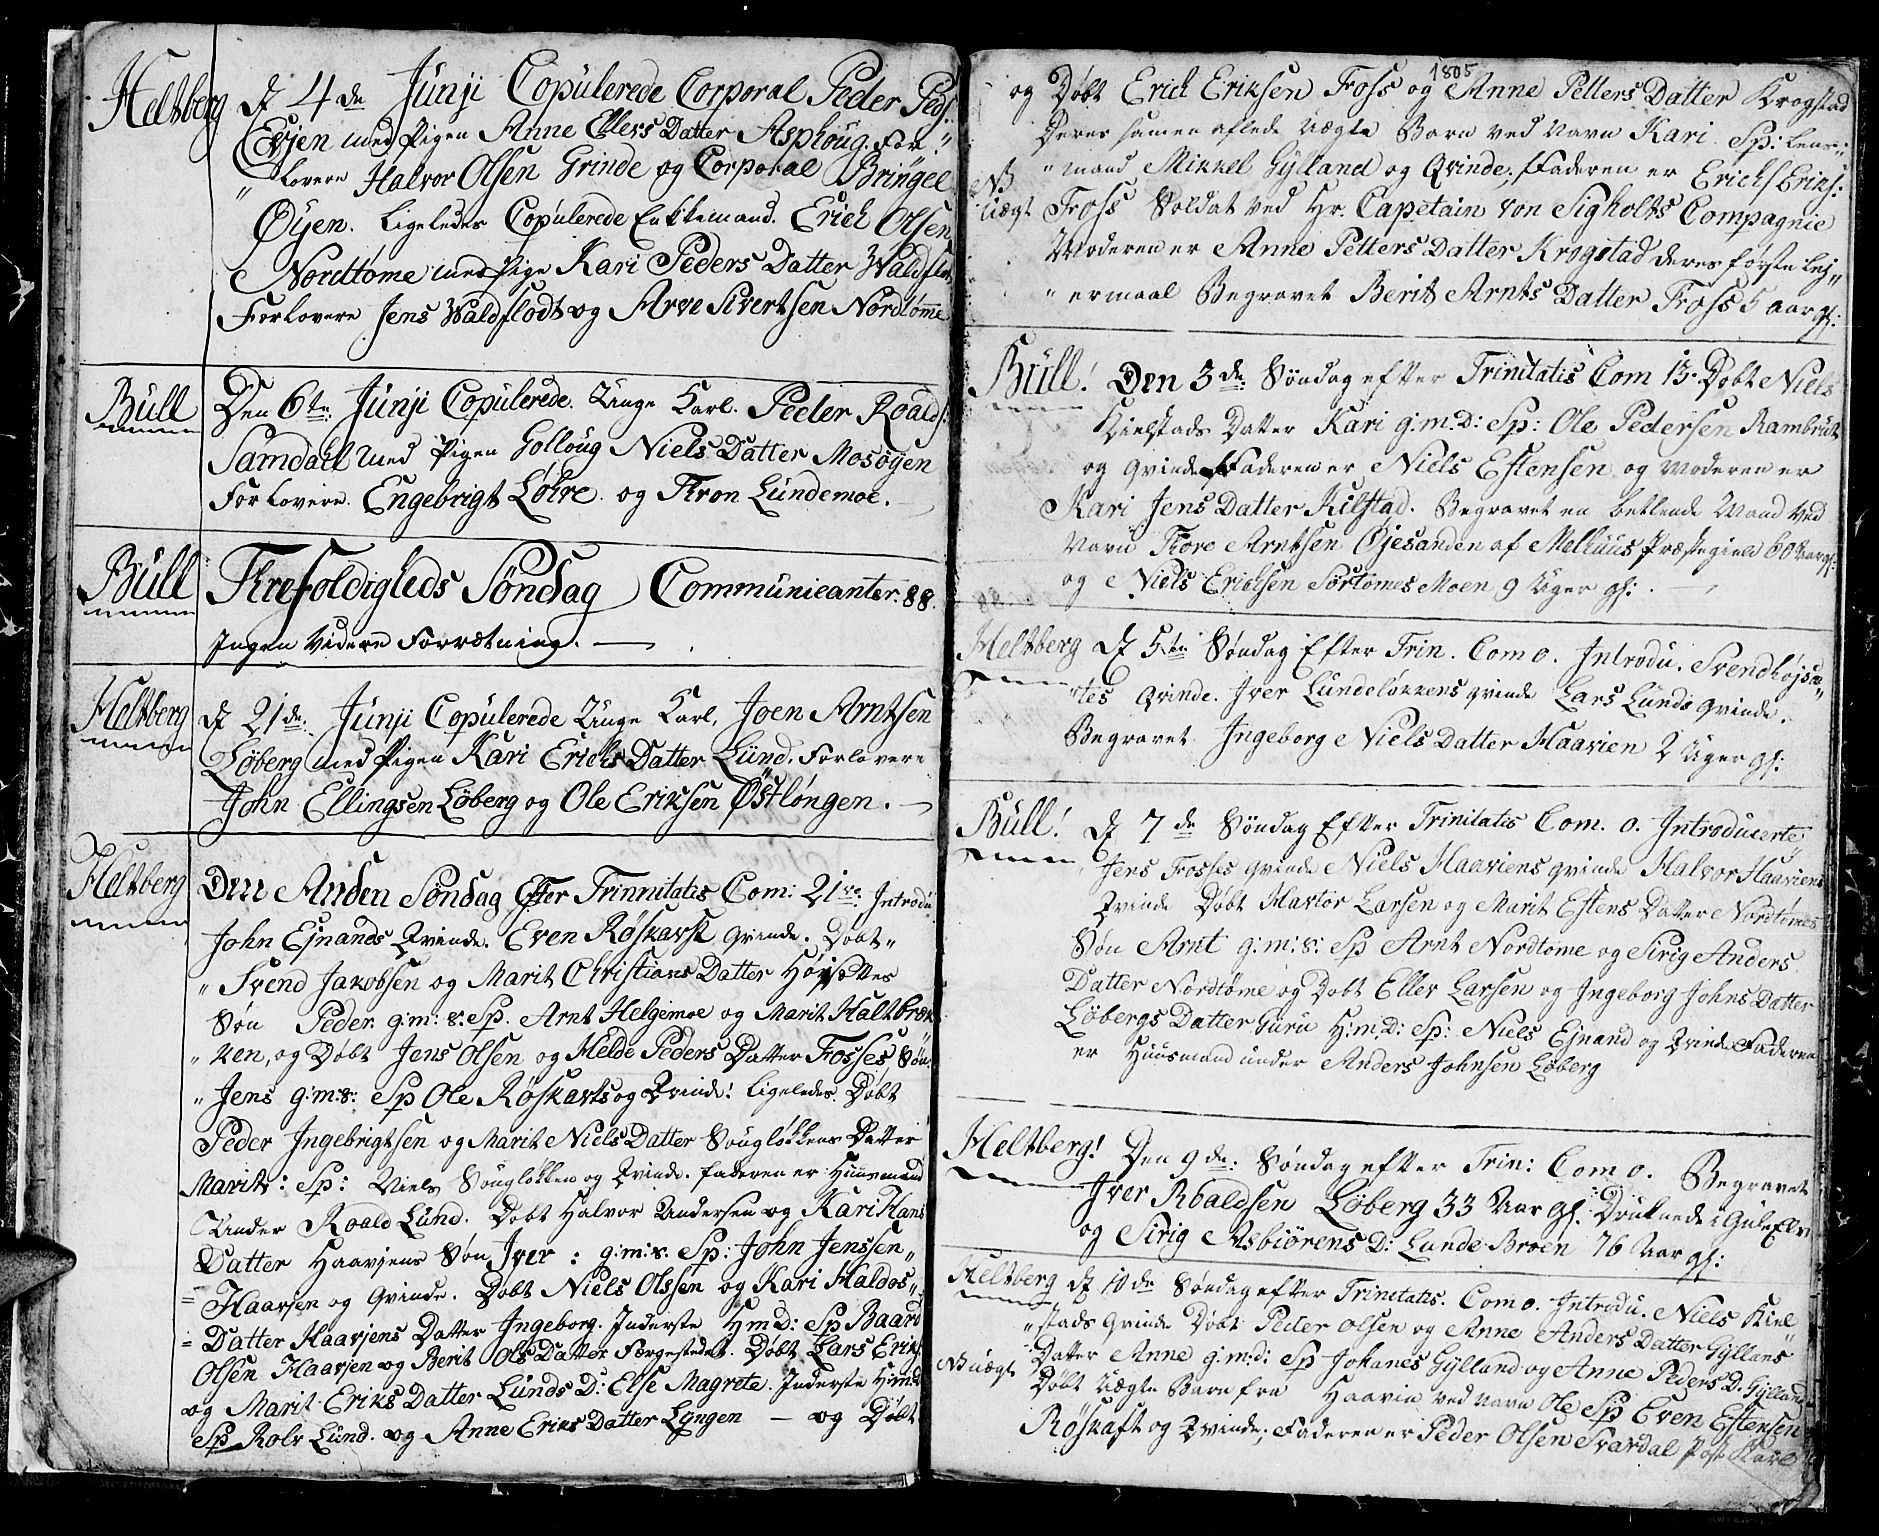 Heltberg d 4de Junji Copulerede Corporal Peder Peds:
Evjen med Pigen Anne Ellers Datter Asphoug. For"
" lovere Halvor Olsen Grinde og Corporal Bringel
Øyen. Ligeledes Copulerede Enkemand. Erich Olsen
Nordtøme med Pige Kari Peders Datter Waldflot
Forlovere Jens Waldflodt og Arve Sivertsen Nordtømme
Büll Den 6te: Junji Copulerede. Unge Karl. Peder Roalds:
Samdahl med Pigen Golloug Niels Datter Mosøyen
Forlovere. Engebrigt Løhre. og Thron Lundemoe.
Büll Trefoldigheds Søndag Communicanter. 88.
Ingen Videre Forretning. —
Heltberg d 21de: Junji Copulerede Unge Karl, Joen Arntsen
Løberg med Pigen Kari Erichs Datter Lund. Forlovere
John Ellingsen Løberg og Ole Eriksen Østløngen. —
Heltberg Den Anden Søndag Efter Trinnitatis Com: 21ve: Introdu
John Ejnands Qvinde. Even Røskaft Qvinde. Døbt "
" Svend Jakobsen og Marit Christians Datter Højsettes
Søn Peder. g:m: s: Sp. Arnt Helgemoe og Marit Haltbræk
" ken, og Døbt Jens Olsen og Helde Peders Datter Fosses, Søn
" Jens g:m:s: Sp Ole Røskarts og Qvinde: ligeledes Døbt
Peder Ingebrigtsen og Marit Niels Datter Sougløkkens Datter
Marit: Sp: Niels Sougløkken og Qvinde. faderen er Huusmand
Under Roald Lund. Døbt Halvor Andersen og Kari Hans
Datter Haavjens Søn Jver: g:m:s. Sp: John Jenssen "
= Haavjen og Qvinde. Døbt Niels Olssen og Kari Haldos "
= Datter Haavjens Datter Ingeborg. Inderste HmD: Sp Baard
Olsen Haavjen og Berit Ols Datter Forgestedet. Døbt Lars Eriks
og Marit Eriks Datter Lunds D: Else Magrete. Inderste H:m:d
Sp Rolv Lund. og Anne Eriks Datter Lyngen — og Døbt
1805
og Døbt Erich Eriksen Foss og Anne Petters Datter Krogstad
Deres samen aflede Uægte Barn ved Navn Kari. Sp: Lens "
NB " mand Mikkel Gylland og Qvinde; Faderen er Erichs Eriks:
Uægt Foss Soldat ved Hr. Capetain von Sigholts Compagnie
Moderen er Anne Petters Datter Krogstad deres første Lej "
" ermaal Begravet Berit Arnts Datter Foss 5 aar gl:
Büll! Den 3de: Søndag efter Trinitatis Com 13. Døbt Niels
Kielstads Datter Kari g:m:D: Sp: Ole Pedersen Rambrut
og Qvinde Faderen er Niels Estensen og Moderen er
Kari Jens Datter Kilstad. Begravet en betlende Mand Ved
Navn Tore Arntsen Øjesanden af Melhuus Præstegield 60 Aar gl:
og Niels Erichsen Sørtømes Moen 9 Uger gl: . —
Heltberg d 5te Søndag Efter Trin. Com 0. Introdu. Svend Højse "
" tes Qvinde. Jver Lundeløkkens Qvinde Lars Lunds Qvinde.
Begravet Ingeborg Niels Datter Haavien 2 Uger gl:
Büll! d 7de Søndag Efter Trinitatis Com. 0. Introducerte
Jens Fosses Qvinde Niels Haaviens Qvinde Halvor Haaviens
Qvinde Døbt Havtor Larsen og Marit Estens Datter Nordtømes
Søn Arnt g:m:s: Sp Arnt Nordtøme og Sirig Anders
Datter Nordtøme og Døbt Eller Larsen og Ingeborg Johns Datter
Løbergs Datter Guru H:m:D: Sp: Niels Ejnand og Qvinde Faderen
er Huusmand under Anders Johnsen Løberg
Heltberg! Den 9de: Søndag efter Trin: Com 0. Begravet
Jver Roaldsen Løberg 33 Aar gl: Druknede i Gulelv
og Sirig Asbiørens D: Lunde Broen 76 Aar gl:
Heltberg d 10de Søndag efter Trinitatis. Com 0. Introdu. Niels Kiel
" stads Qvinde Døbt Peder Olsen og Anne Anders Datter Gyllans "
Datter Anne g:m:d: Sp Johanes Gylland og Anne Peders D. Gylland
NB uægt Døbt Uægte Barn fra Haavin ved navn Ole Sp Even Estensen
Røskaft og Qvinde; Faderen er Peder Olsen Svardal Post Karl